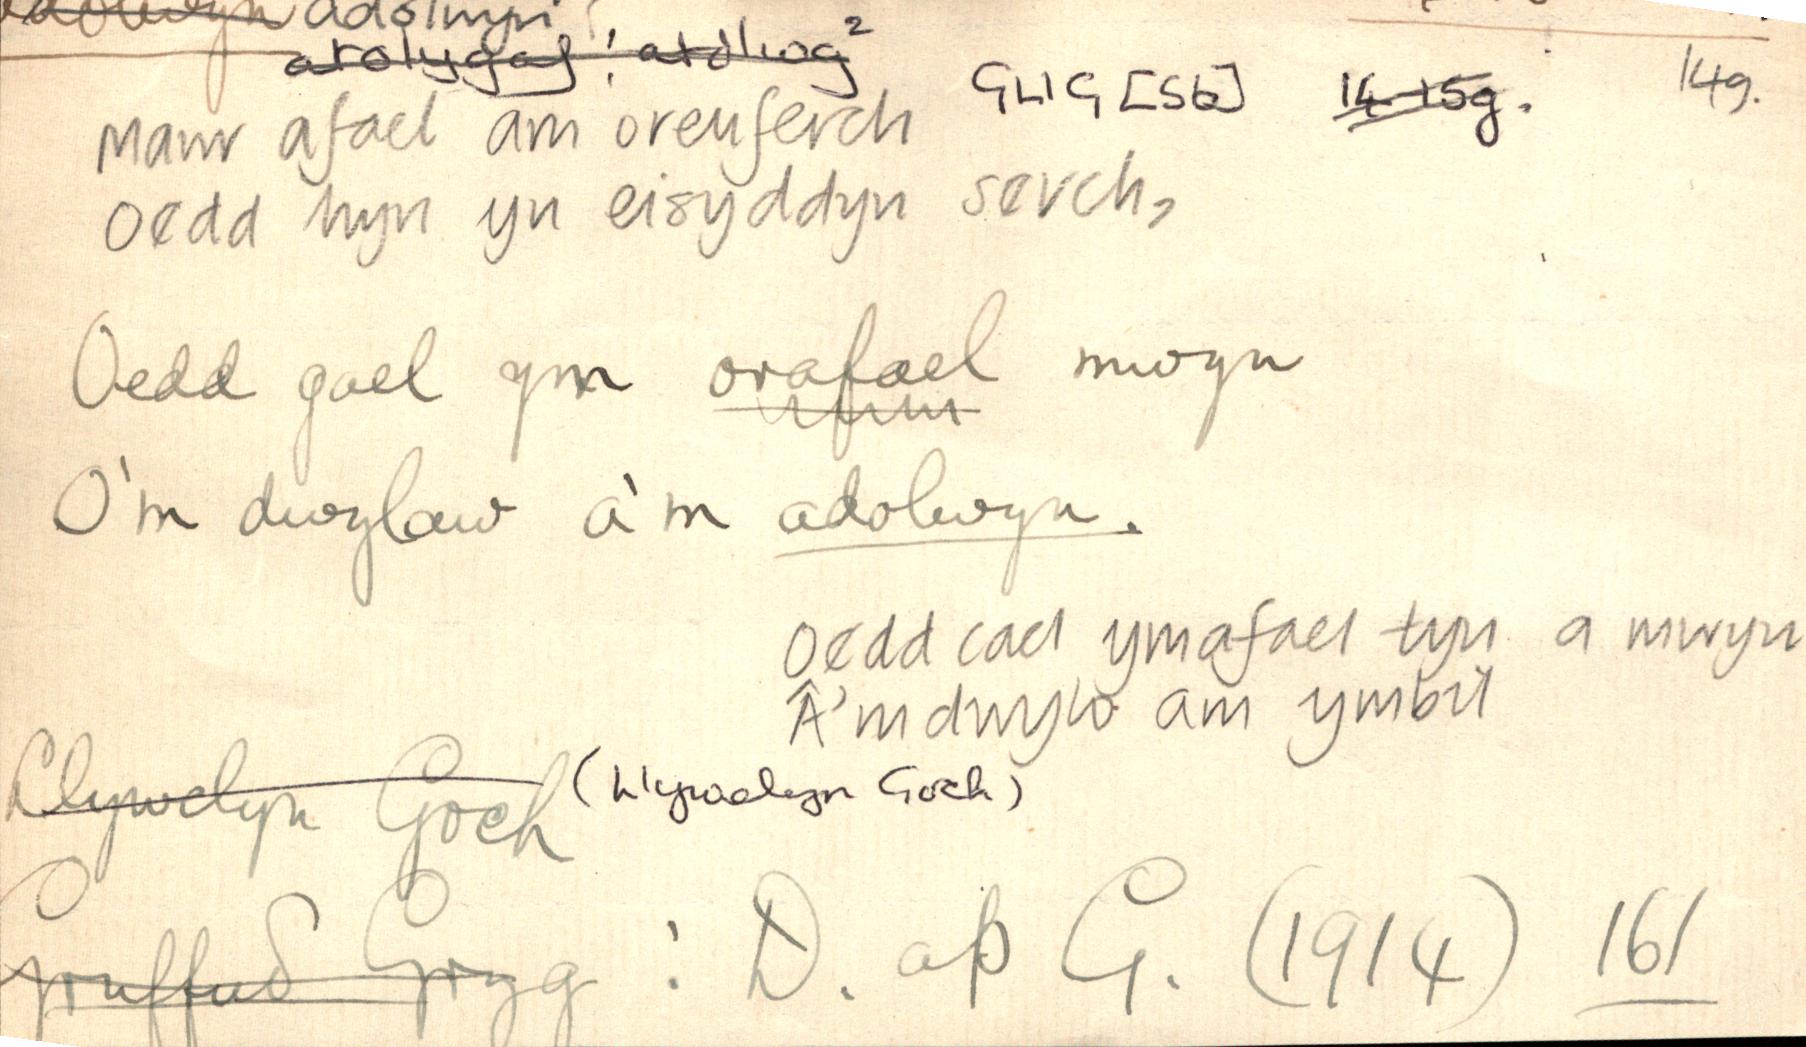 adolwyn adolwyn?
arolygaf : atdlwg²
GLIG [Sb] 14-15g. 14g.
Mawr afael am oreuferch
Oedd hyn yn eisyddyn serch,
Oedd gael ym orafael mwyn
O'm dwylaw a'm adolwyn.
Oedd cael ymafael tyn a mwyn
Â'm dwylo am ymbil
Llywelyn Goch (Llywelyn Goch)
Gruffud Gryg : D. ap G. (1914) 161